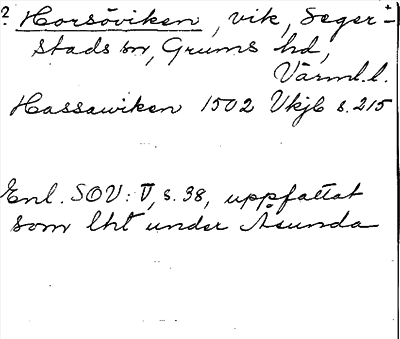 ? Horsöviken, vik, Seger-
stads sn, Grums hd,
Värml. l.
Hassawiken 1502 Vkjb s. 215
Enl. SOV: V, s. 38, uppfattat
som lht under Åsunda